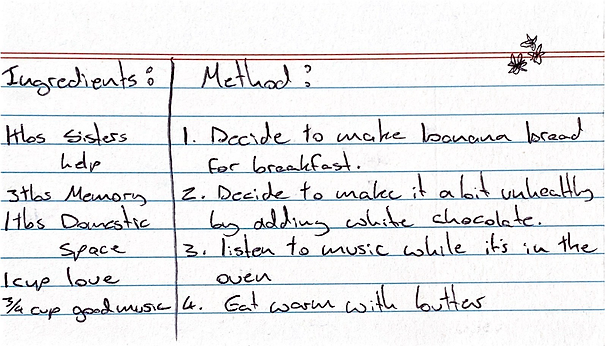 Ingredients:
1tbs Sisters
help
3tbs Memory
1tbs Domestic
Space
1cup love
3/4 cup good music
Method:
1. Decide to make banana bread
for breakfast.
2. Decide to make it a bit unhealthy
by adding white chocolate.
3. listen to music while it's in the
oven
4. Eat warm with butter